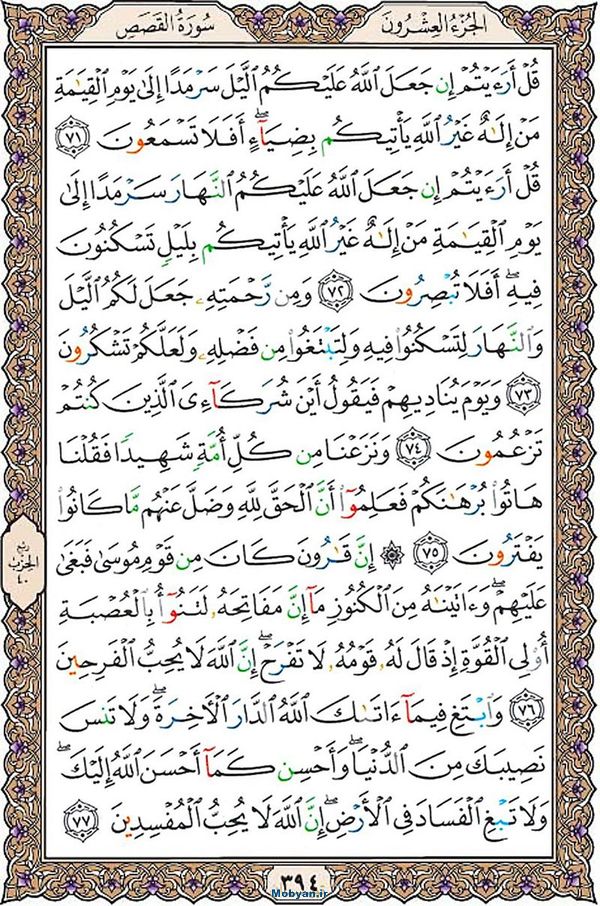 الجُزءُ العِشْرُونَ
سُورَةُ القَصَصِ
قُلْ أَرَءَيْتُمْ إِن جَعَلَ ٱللَّهُ عَلَيْكُمُ ٱلَّيْلَ سَرْمَدًا إِلَىٰ يَوْمِ ٱلْقِيَٰمَةِ
مَنْ إِلَٰهٌ غَيْرُ ٱللَّهِ يَأْتِيكُم بِضِيَآءٍ ۖ أَفَلَا تَسْمَعُونَ ٧١
قُلْ أَرَءَيْتُمْ إِن جَعَلَ ٱللَّهُ عَلَيْكُمُ ٱلنَّهَارَ سَرْمَدًا إِلَىٰ
يَوْمِ ٱلْقِيَٰمَةِ مَنْ إِلَٰهٌ غَيْرُ ٱللَّهِ يَأْتِيكُم بِلَيْلٍ تَسْكُنُونَ
فِيهِ ۖ أَفَلَا تُبْصِرُونَ ٧٢ وَمِن رَّحْمَتِهِۦ جَعَلَ لَكُمُ ٱلَّيْلَ
وَٱلنَّهَارَ لِتَسْكُنُوا۟ فِيهِ وَلِتَبْتَغُوا۟ مِن فَضْلِهِۦ وَلَعَلَّكُمْ تَشْكُرُونَ
٧٣ وَيَوْمَ يُنَادِيهِمْ فَيَقُولُ أَيْنَ شُرَكَآءِىَ ٱلَّذِينَ كُنتُمْ
تَزْعُمُونَ ٧٤ وَنَزَعْنَا مِن كُلِّ أُمَّةٍ شَهِيدًا فَقُلْنَا
هَاتُوا۟ بُرْهَٰنَكُمْ فَعَلِمُوٓا۟ أَنَّ ٱلْحَقَّ لِلَّهِ وَضَلَّ عَنْهُم مَّا كَانُوا۟
يَفْتَرُونَ ٧٥ ۞ إِنَّ قَٰرُونَ كَانَ مِن قَوْمِ مُوسَىٰ فَبَغَىٰ
عَلَيْهِمْ ۖ وَءَاتَيْنَٰهُ مِنَ ٱلْكُنُوزِ مَآ إِنَّ مَفَاتِحَهُۥ لَتَنُوٓأُ بِٱلْعُصْبَةِ
أُو۟لِى ٱلْقُوَّةِ إِذْ قَالَ لَهُۥ قَوْمُهُۥ لَا تَفْرَحْ ۖ إِنَّ ٱللَّهَ لَا يُحِبُّ ٱلْفَرِحِينَ
٧٦ وَٱبْتَغِ فِيمَآ ءَاتَىٰكَ ٱللَّهُ ٱلدَّارَ ٱلْءَاخِرَةَ ۖ وَلَا تَنسَ
نَصِيبَكَ مِنَ ٱلدُّنْيَا ۖ وَأَحْسِن كَمَآ أَحْسَنَ ٱللَّهُ إِلَيْكَ ۖ
وَلَا تَبْغِ ٱلْفَسَادَ فِى ٱلْأَرْضِ ۖ إِنَّ ٱللَّهَ لَا يُحِبُّ ٱلْمُفْسِدِينَ ٧٧
ربع
الحزب
٤٠
٣٩٤
Mobyan.ir